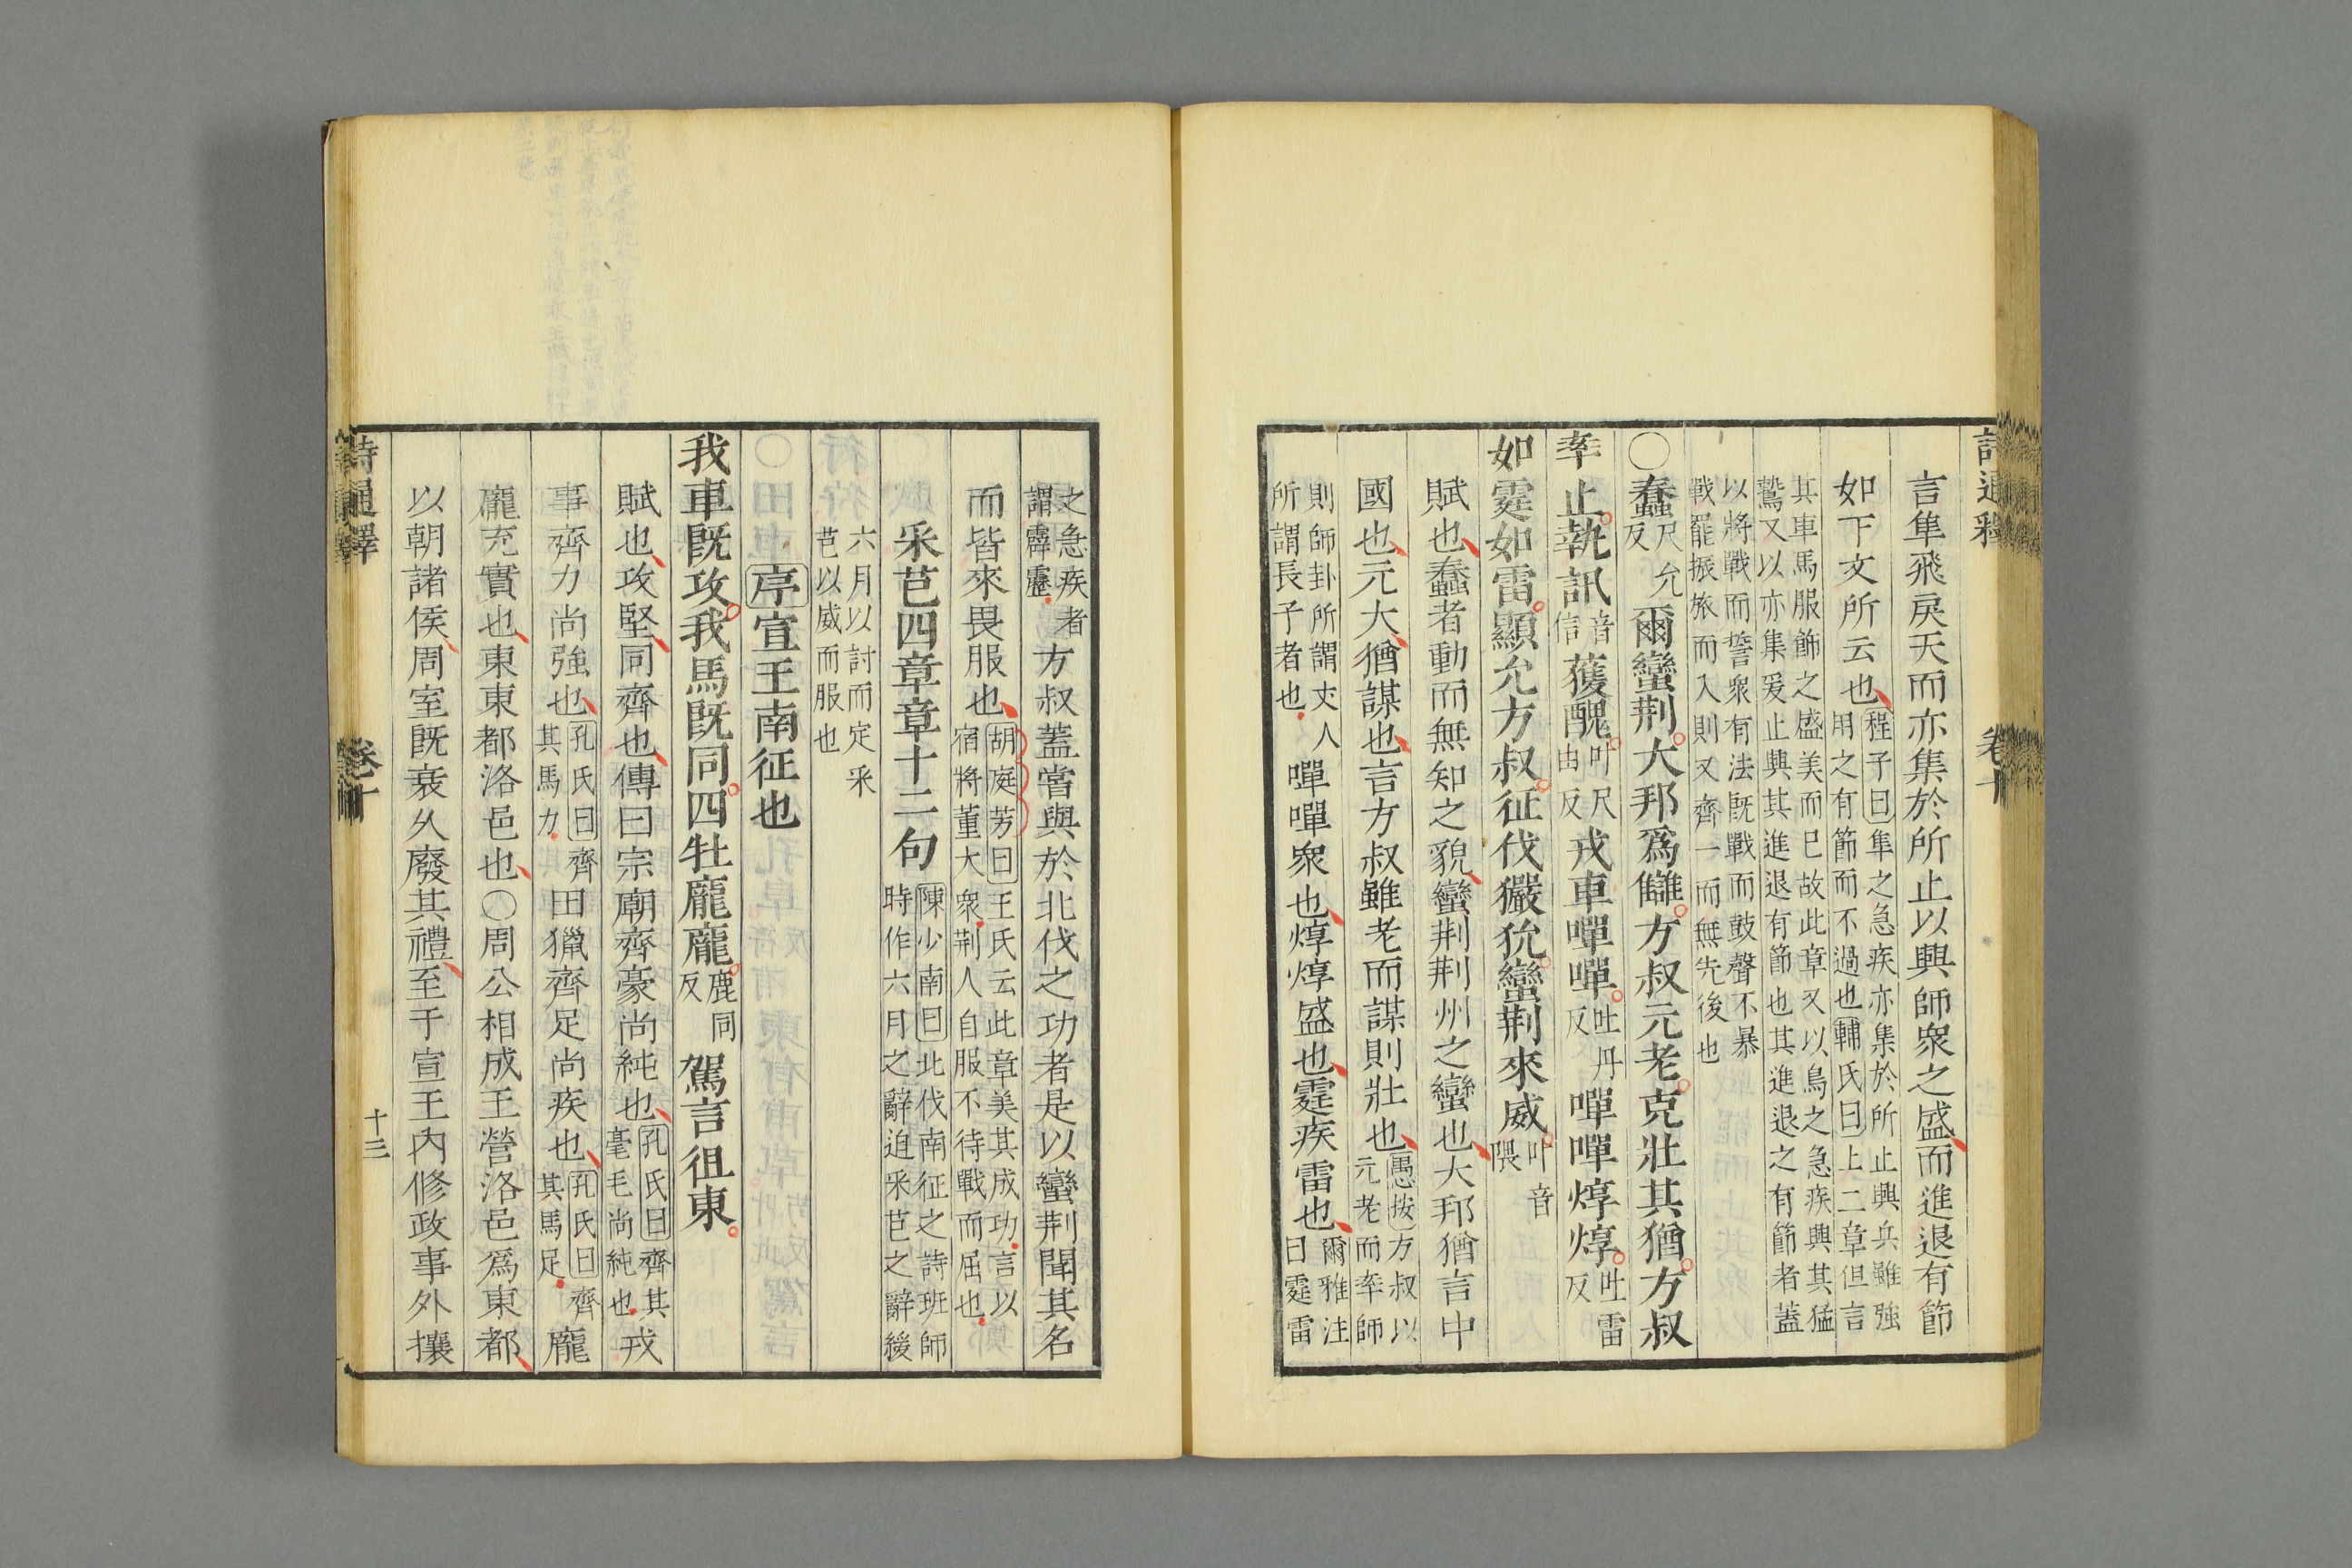 詩通釋 卷十
言隼飛戾天而亦集於所止以興師衆之盛而進退有節
如下文所云也程子曰隼之急疾亦集於所止興兵雖強用之有節而不過也輔氏曰上二章但言
其車馬服飾之盛美而已故此章又以鳥之急疾興其猛鷙又以亦集爰止興其進退有節也其進退之有節者蓋
以將戰而誓衆有法旣戰而鼓聲不暴戰罷振旅而入則又齊一而無先後也
○蠢尺允反爾蠻荆大邦爲讎方叔元老克壯其猶方叔
率止執訊音信獲醜叶尺由反戎車嘽嘽吐丹反嘽嘽焞焞吐雷反
如霆如雷顯允方叔征伐玁狁蠻荆來威叶音隈
賦也蠢者動而無知之貌蠻荆荆州之蠻也大邦猶言中
國也元大猶謀也言方叔雖老而謀則壯也愚按方叔以元老而率師
則師卦所謂丈人所謂長子者也嘽嘽衆也焞焞盛也霆疾雷也爾雅注曰霆雷
之急疾者謂霹靂方叔蓋嘗與於北伐之功者是以蠻荆聞其名
而皆來畏服也胡庭芳曰王氏云此章美其成功言以宿將董大衆荆人自服不待戰而屈也
采芑四章章十二句陳少南曰北伐南征之詩班師時作六月之辭迫采芑之辭緩
六月以討而定采芑以威而服也
序宣王南征也
我車旣攻我馬旣同四牡龐龐鹿同反駕言徂東
賦也攻堅同齊也傳曰宗廟齊豪尚純也孔氏曰齊其毫毛尚純也戎
事齊力尚強也孔氏曰齊其馬力田獵齊足尚疾也孔氏曰齊其馬足龐
龐充實也東東都洛邑也○周公相成王營洛邑爲東都
以朝諸侯周室旣衰久廢其禮至于宣王内修政事外攘
詩通釋 卷十 十三